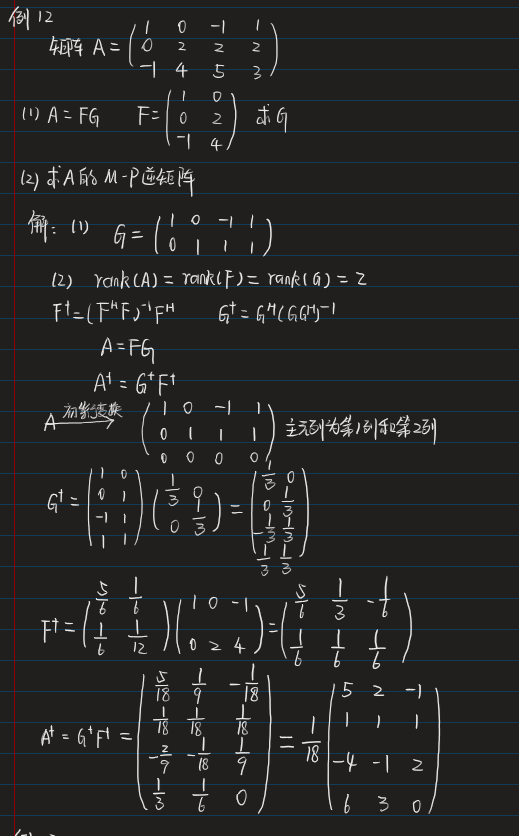 例12
矩阵 A = ( 1 0 -1 1 ; 0 2 2 2 ; -1 4 5 3 )
(1) A = FG  F = ( 1 0 ; 0 2 ; -1 4 ) 求G
(2) 求A的M-P逆矩阵
解: (1) G = ( 1 0 -1 1 ; 0 1 1 1 )
(2) rank(A) = rank(F) = rank(G) = 2
F⁺ = (FᴴF)⁻¹Fᴴ  G⁺ = Gᴴ(GGᴴ)⁻¹
A = FG
A⁺ = G⁺F⁺
A 初等变换→ ( 1 0 -1 1 ; 0 1 1 1 ; 0 0 0 0 ) 主元列为第1列和第2列
G⁺ = ( 1 0 ; 0 1 ; -1 1 ; 1 1 ) ( 1/3 0 ; 0 1/3 ) = ( 1/3 0 ; 0 1/3 ; -1/3 1/3 ; 1/3 1/3 )
F⁺ = ( 5/6 1/6 ; 1/6 1/12 ) ( 1 0 -1 ; 0 2 4 ) = ( 5/6 1/3 -1/6 ; 1/6 1/6 1/6 )
A⁺ = G⁺F⁺ = ( 5/18 1/9 -1/18 ; 1/18 1/18 1/18 ; -2/9 -1/18 1/9 ; 1/3 1/6 0 ) = 1/18 ( 5 2 -1 ; 1 1 1 ; -4 -1 2 ; 6 3 0 )